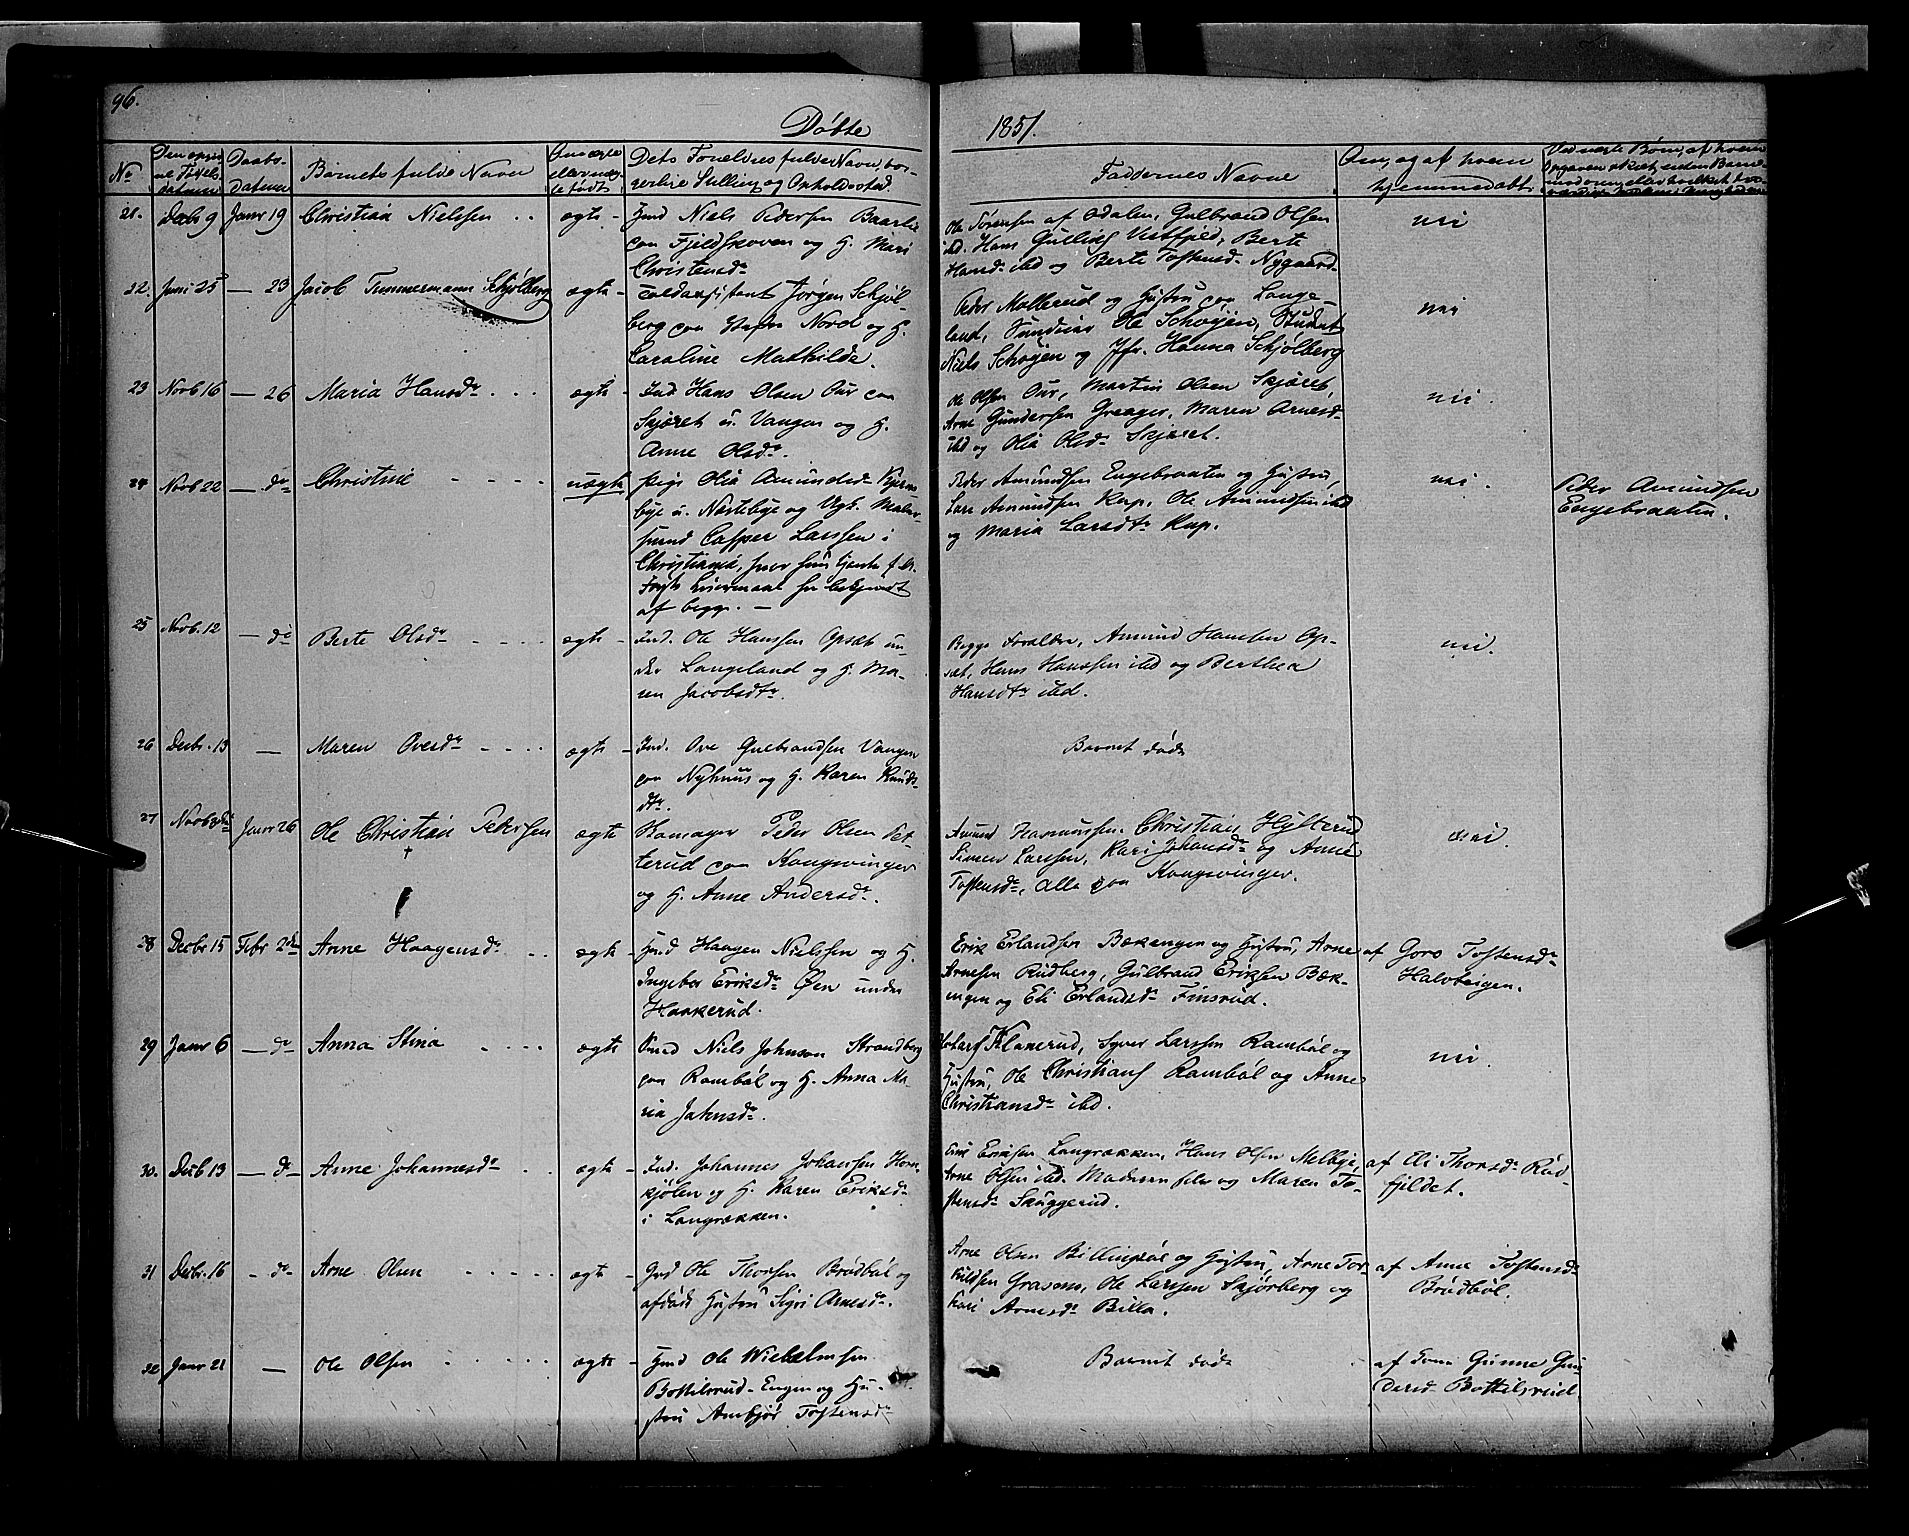 96.
Døbte
1851.
No
Daabs-
Datum
Barnets fulde Navn
Dets Forældres fulde Navn, bor-
gerlige Stilling og Opholdssted.
Faddernes Navne
Om og af hvem
hjemmedøbt
21. Decb 9 Janr 19 Christian Nielsen . . ægte - Niels Pedersen
paa Fjeldskoven og H. Mari
Christensdr
Ole Torensen af Odalen, Gulbrand Olsen
ibd. Hans Vestfjeld, Berte
Hansdr ibd og Berte Tostensdr Nygaard
nei
22. Juni 25 — 23 Jacob Timmermann Schjølberg ægte - Toldassistent Jørgen Schjøl-
berg paa Nord og H.
Caroline Mathilde.
Peder Mollerud og Hustru paa Lange-
land, Ole Schøyen, Student
Niels Schøyen og Jfr. Hanna Schjølberg
nei
23 Novb 16 — 26 Maria Hansdr . . . ægte - Ind Hans Olsen Our paa
Skjæret u. Vangen og H.
Anne Olsdr.
Ole Olsen Our, Martin Olsen Skjæret,
Arne Gundersen Greager, Maren Arnesdr
ibd og Olia Olsdr Skjæret.
nei.
24 Novb 22 — do Christine - - - - uægte Pige Olia Amundsdr
bye u. Nortebye og Ugk. Maler-
svend Casper Larssen i
Christiania, hvor hun tjente
af begge. —
Peder Amundsen Engebraaten og Hustru,
Lars Amundsen Kup, Ole Amundsen ibd
og Maria Larsdtr Kup.
nei.
Peder Amundsen
Engebraaten.
25 Novb. 12 — do Berte Olsdr - - - - ægte - Ind. Ole Hanssen Opsæt un-
der Langeland og H. Ma-
ren Jacobsdtr.
Begge Forældre, Amund Hansen Op-
sæt, Hans Hanssen ibd og Berthea
Hansdtr ibd.
nei.
26 Decbr. 13 — Maren Ovesdr - - - - ægte - Ind. Ove Gulbrandsen Vangen
paa Nyhuus og H. Karen Knuds-
dtr.
Barnet død
27 Janr 26 Ole Christian Pedersen ægte - Peder Olsen Pet-
terud paa Kongsvinger
og H. Anne Andersdr.
Amund Rasmussen, Christian Hylterud
Simen Larssen, Kari Johansdr og Anne
Tostensdr, alle paa Kongsvinger.
nei.
28 Decbr 15 Febr 2den Anne Haagensdr . . ægte - Ind Haagen Nielssen og H.
Ingebor Eriksdr Øen under
Haakerud.
Erik Erlandsen Bækengen og Hustru, Arne
Arnesen Rudberg, Gulbrand Eriksen Bæk-
engen og Eli Erlandsdr Finsrud.
af Goro Tostensdr
Halvbeigen.
29 Janr 6 — do Anna Stina - - - - ægte Smed Niels Johnson Strandberg
paa Rambøl og H. Anna Ma-
ria Jahnsdr.
Klanerud, Syver Larssen Rambøl og
Hustru, Ole Christians Rambøl og Anne
Christiansdr ibd.
nei.
30. Decb 13 — do Anne Johannesdr . . ægte - Ind. Johannes Johansen Horn-
kjølen og H. Karen Eriksdr
i Langrækken.
Eriksen Langrækken, Hans Olsen Melbye,
Arne Olsen ibd. Madmen og Maren To-
stensdr Skuggerud.
af Eli Thorsdr Rud-
fjeldet.
31 Decbr. 16 - do- Arne Olsen - - - - - ægte - Ind Ole Thorsen Brødbøl og
afdøde Hustru Sigri Arnesdr.
Arne Olsen og Hustru, Arne Tor-
kildsen Grasmo, Ole Larssen Skjørberg og
Kari Arnesdr Billa.
af Anne Tostensdr
Brødbøl.
32 Janr 21 — Ole Olsen - - - - ægte - Ind Ole Wilhelmsen
Bottilsrud-Engen og Hu-
stru Ambjør Tostensdr
Barnet død
af Gunne Gun-
dersd Bottilsrud